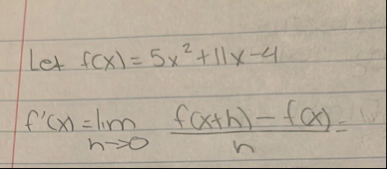 Let f(x) = 5x² + 11x - 4
f'(x) = lim f(x+h) - f(x) =
h→0 h